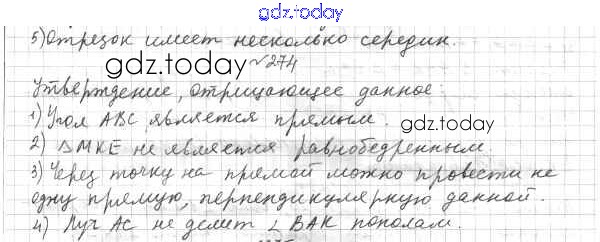 gdz.today
5) Отрезок имеет несколько середин.
gdz.today
№274
Утверждение, отрицающее данное:
1) Угол ABC является прямым.
gdz.today
2) ΔMKE не является равнобедренным.
3) Через точку на прямой можно провести не
одну прямую, перпендикулярную данной.
4) Луч AC не делит ∠BAK пополам.